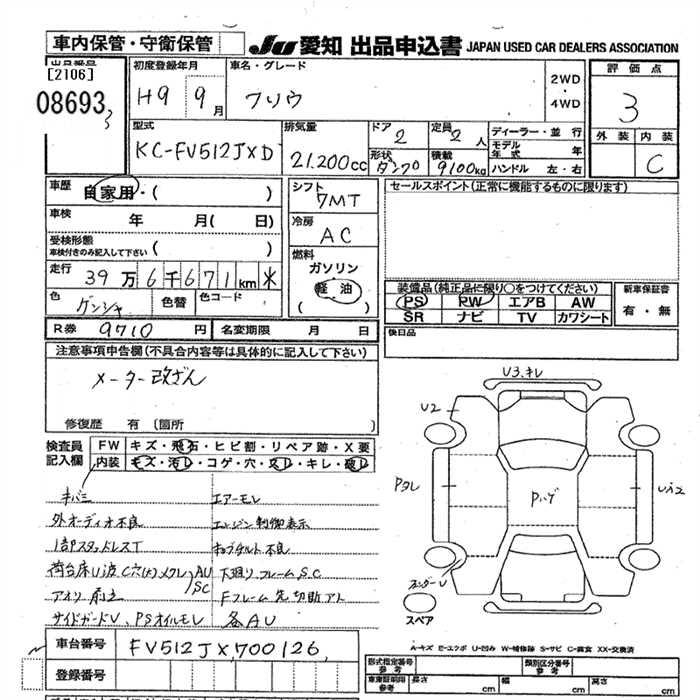 車内保管・守衛保管
JU 愛知 出品申込書 JAPAN USED CAR DEALERS ASSOCIATION
出品番号
[2106]
08693
初度登録年月
H9 9月
車名・グレード
フソウ
2WD
・
4WD
評価点
3
外装 内装
C
型式
KC-FV512JXD
排気量
21.200cc
ドア
2
定員
2人
形状
ダンプ
積載
9100kg
ディーラー・並行
モデル年式 年
ハンドル 左・右
車歴
自家用・( )
車検
年 月( 日)
受検形態
車検付きのみ記入して下さい ・( )
走行
39万6千671km
色
ゲンシャ
色替
色コード
R券 9710円
名変期限 月 日
シフト
7MT
冷房
AC
燃料
ガソリン
軽油
( )
セールスポイント(正常に機能するものに限り)
装備品(純正品に限り○をつけてください)
PS PW エアB AW
SR ナビ TV カワシート
新車保証書
有・無
後日品
注意事項申告欄(不具合内容等は具体的に記入して下さい)
メーター改ざん
修復歴 有 (箇所 )
検査員記入欄
FW キズ・飛石・ヒビ割・リペア跡・X要
内装 キズ・汚レ・コゲ・穴・スレ・キレ・破レ
キバミ
エアーモレ
外オーディオ不良
エンジン制御表示
1部スタッドレスT
キャブチルト不良
荷台床U波C穴(大)メクレ AU SC
下廻りフレームS.C
Fフレーム先切断アト
サイドガードU、PSオイルモレ
各AU
車台番号 FV512JX700126
登録番号
U3.キレ
U2
Pタレ
Pハゲ
スペア
A-キズ E-エクボ U-凹み W-補修跡 S-サビ C-腐食 XX-交換済
形式指定番号
参考
類別区分番号
参考
車庫証明用
参考
長さ cm
幅 cm
高さ cm